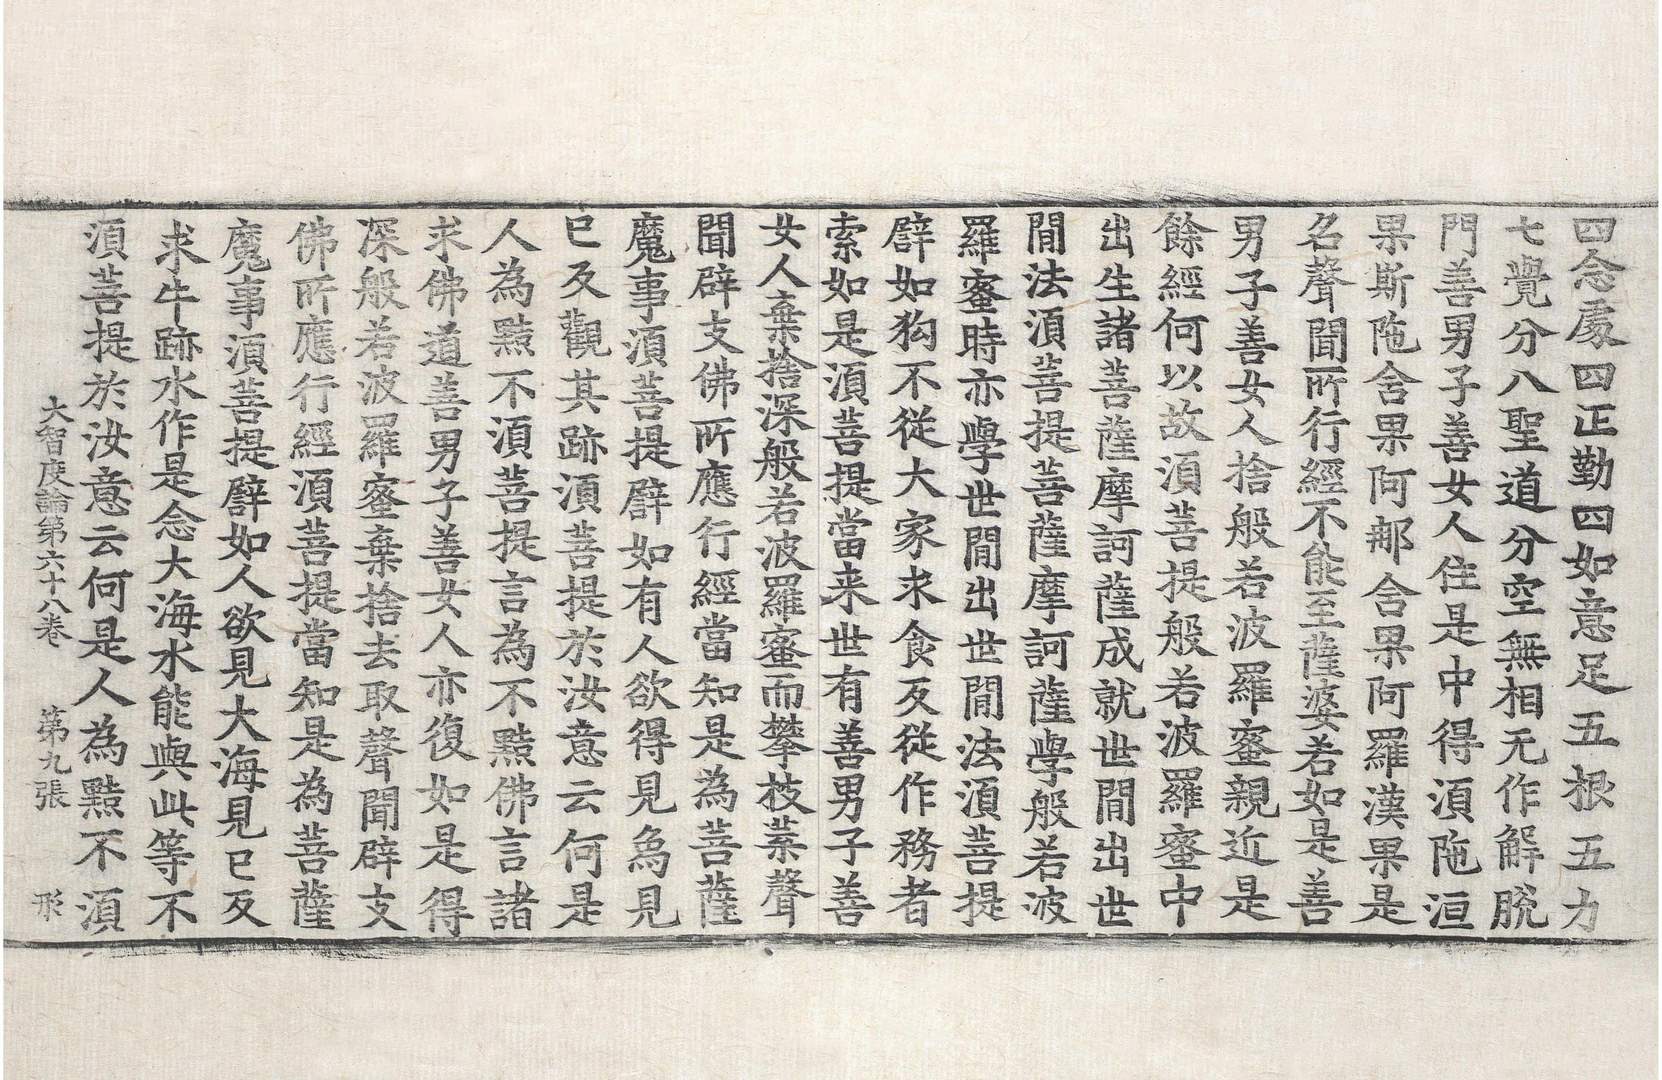 四念處四正勤四如意足五根五力
七覺分八聖道分空無相无作解脫
門善男子善女人住是中得湏陁洹
果斯陁含果阿那含果阿羅漢果是
名聲聞所行經不能至薩婆若如是善
男子善女人捨般若波羅蜜親近是
餘經何以故湏菩提般若波羅蜜中
出生諸菩薩摩訶薩成就世閒出世
閒法湏菩提菩薩摩訶薩學般若波
羅蜜時亦學世閒出世閒法湏菩提
譬如狗不從大家求食反從作務者
索如是湏菩提當来世有善男子善
女人棄捨深般若波羅蜜而攀枝葉聲
聞辟支佛所應行經當知是為菩薩
魔事湏菩提譬如有人欲得見象見
已反觀其跡湏菩提於汝意云何是
人為黠不湏菩提言為不黠佛言諸
求佛道善男子善女人亦復如是得
深般若波羅蜜棄捨去取聲聞辟支
佛所應行經湏菩提當知是為菩薩
魔事湏菩提譬如人欲見大海見已反
求牛跡水作是念大海水能與此等不
湏菩提於汝意云何是人為黠不湏
大智度論第六十八卷 第九張 形